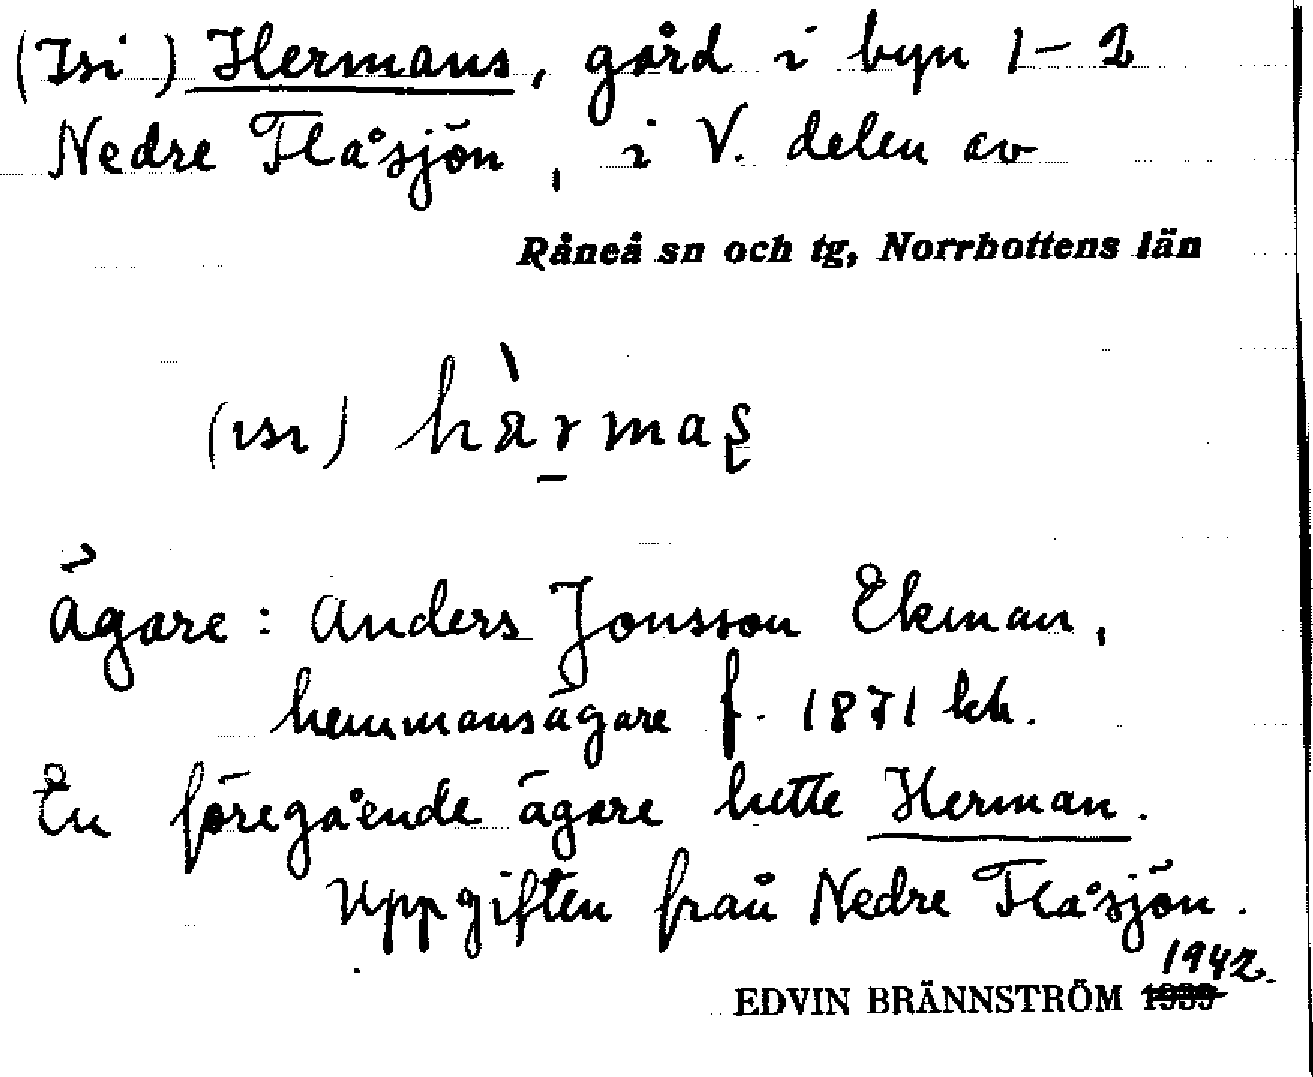 (Isi) Hermans, gård i byn 1–2
Nedre Flåsjön, i V. delen av
Råneå sn och tg, Norrbottens län
(ısı) hàr̲maʂ
Ägare: Anders Jonsson Ekman,
hemmansägare f. 1871 kh.
En föregående ägare hette Herman.
Uppgiften från Nedre Flåsjön.
1942.
EDVIN BRÄNNSTRÖM 1939